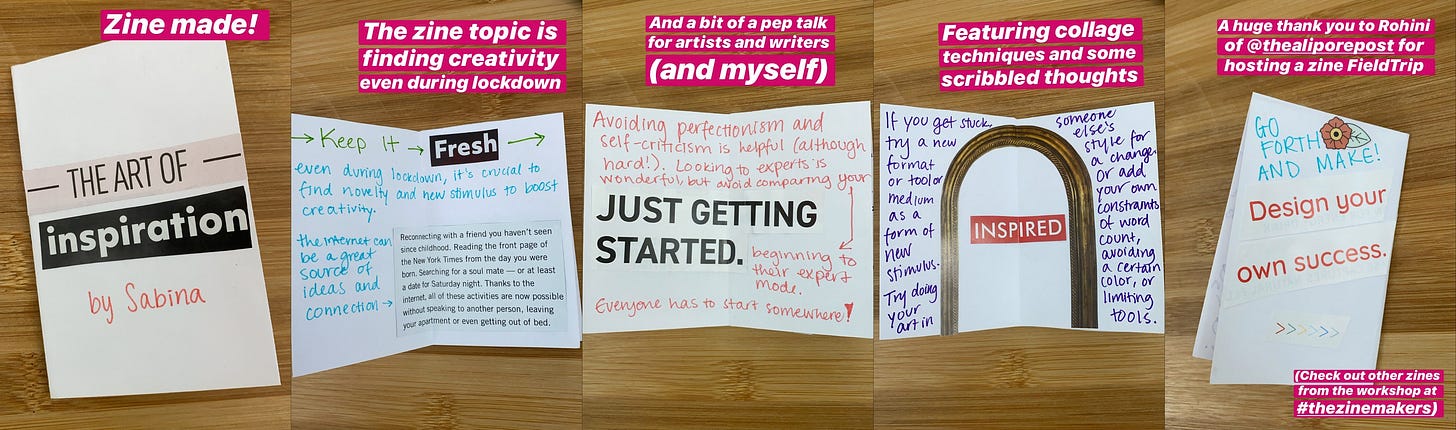 Zine made!
THE ART OF
inspiration
by Sabina
The zine topic is
finding creativity
even during lockdown
→ Keep It → Fresh →
even during lockdown, it's crucial to
find novelty and new stimulus to boost
creativity.
the internet can
be a great
source of
ideas and
connection →
Reconnecting with a friend you haven't seen
since childhood. Reading the front page of
the New York Times from the day you were
born. Searching for a soul mate — or at least
a date for Saturday night. Thanks to the
internet, all of these activities are now possible
without speaking to another person, leaving
your apartment or even getting out of bed.
And a bit of a pep talk
for artists and writers
(and myself)
Avoiding perfectionism and
self-criticism is helpful (although
hard!). Looking to experts is
wonderful, but avoid comparing your
JUST GETTING
STARTED.
beginning to
their expert
mode.
Everyone has to start somewhere!
Featuring collage
techniques and some
scribbled thoughts
If you get stuck,
try a new
format
or tool or
medium
as a
form of
new
stimulus.
Try doing
your
art in
INSPIRED
someone
else's
style for
a change.
or add
your own
constraints
of word
count,
avoiding
a certain
color, or
limiting
tools.
A huge thank you to Rohini
of @thealiporepost for
hosting a zine FieldTrip
GO
FORTH
AND MAKE!
Design your
own success.
>>>>>>
(Check out other zines
from the workshop at
#thezinemakers)